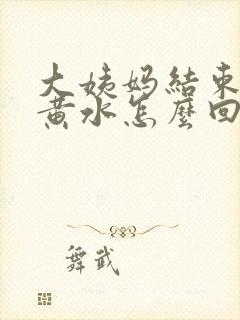 大姨妈結束
黄水怎麼回
舞武